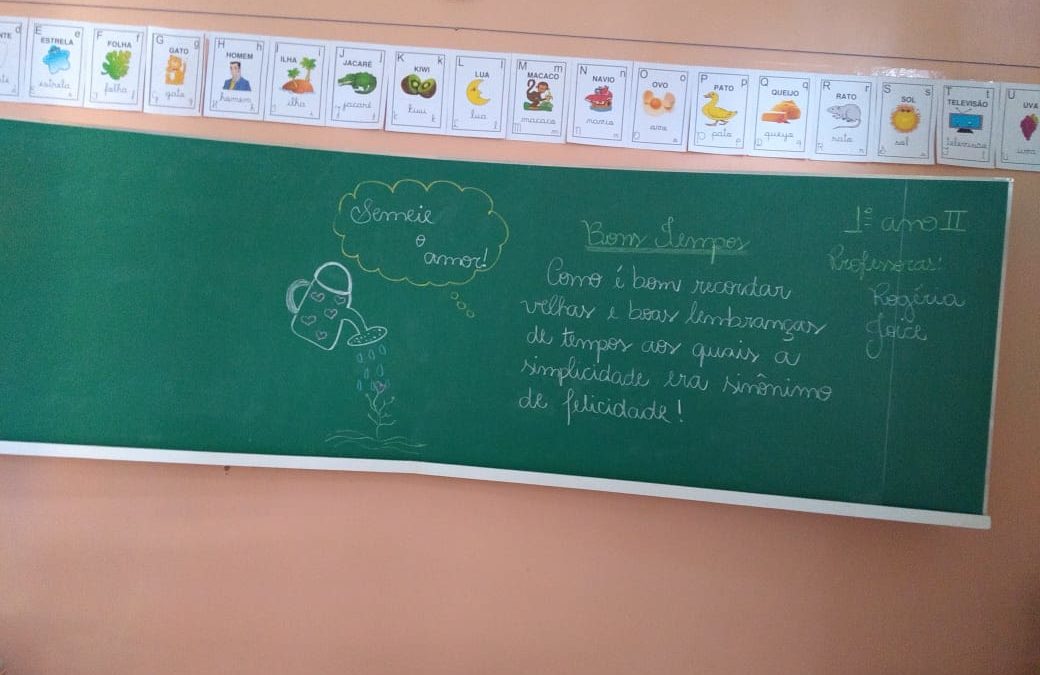 NTE d
E e
ESTRELA
estrela
F f
FOLHA
folha
G g
GATO
gato
H h
HOMEM
homem
I i
ILHA
ilha
J j
JACARÉ
jacaré
K k
KIWI
kiwi
L l
LUA
lua
M m
MACACO
macaco
N n
NAVIO
navio
O o
OVO
ovo
P p
PATO
pato
Q q
QUEIJO
queijo
R r
RATO
rato
S s
SOL
sol
T t
TELEVISÃO
televisão
U
UVA
uva
Semeie
o
amor!
Bons Tempos
Como é bom recordar
velhas e boas lembranças
de tempos aos quais a
simplicidade era sinônimo
de felicidade!
1º ano II
Professoras:
Rogéria
Joice